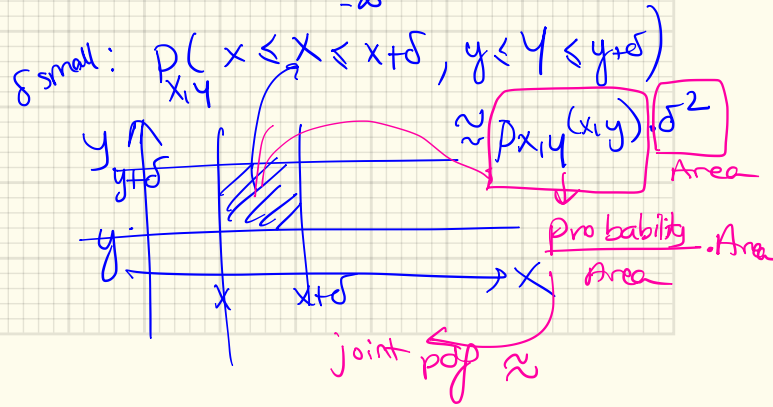 -∞
δ small: P_{X,Y}( x ≤ X ≤ x+δ , y ≤ Y ≤ y+δ )
≈ p_{X,Y}(x,y) . δ²
Area
Y
y+δ
y
probability
Area
.Area
X
x x+δ
joint pdf ≈